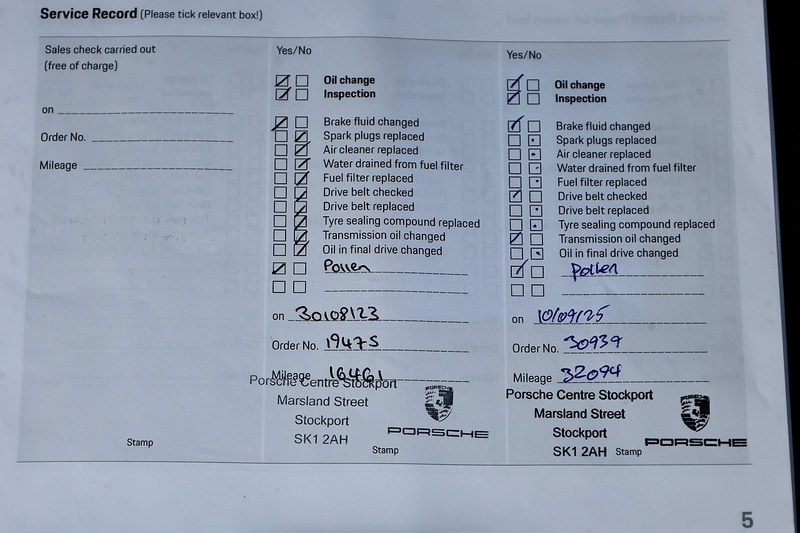 Service Record (Please tick relevant box!)
Sales check carried out
(free of charge)
on
Order No.
Mileage
Stamp
Yes/No
Oil change
Inspection
Brake fluid changed
Spark plugs replaced
Air cleaner replaced
Water drained from fuel filter
Fuel filter replaced
Drive belt checked
Drive belt replaced
Tyre sealing compound replaced
Transmission oil changed
Oil in final drive changed
Pollen
on 30/08/23
Order No. 19475
Mileage 16461
Porsche Centre Stockport
Marsland Street
Stockport
SK1 2AH
PORSCHE
PORSCHE
Stamp
Yes/No
Oil change
Inspection
Brake fluid changed
Spark plugs replaced
Air cleaner replaced
Water drained from fuel filter
Fuel filter replaced
Drive belt checked
Drive belt replaced
Tyre sealing compound replaced
Transmission oil changed
Oil in final drive changed
Pollen
on 10/09/25
Order No. 30939
Mileage 32094
Porsche Centre Stockport
Marsland Street
Stockport
SK1 2AH Stamp
PORSCHE
PORSCHE
5